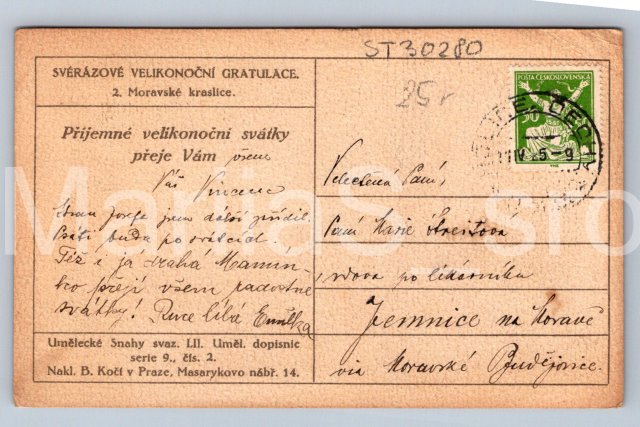 ST30280
25 r
SVÉRÁZOVÉ VELIKONOČNÍ GRATULACE.
2. Moravské kraslice.
Příjemné velikonoční svátky
přeje Vám všem
Váš Vincenc
jsem dávno zřídil.
psáti budu po svátcích.
Též i já drahá Mamin-
ko přeji všem radostné
svátky! Ruce líbá Emilka
Umělecké Snahy svaz. LII. Uměl. dopisnic
serie 9., čís. 2.
Nakl. B. Kočí v Praze, Masarykovo nábř. 14.
POŠTA ČESKOSLOVENSKÁ
50
Velectěná Paní,
Paní Marie Streitová
vdova po lékárníku
Jemnice na Moravě
via Moravské Budějovice.